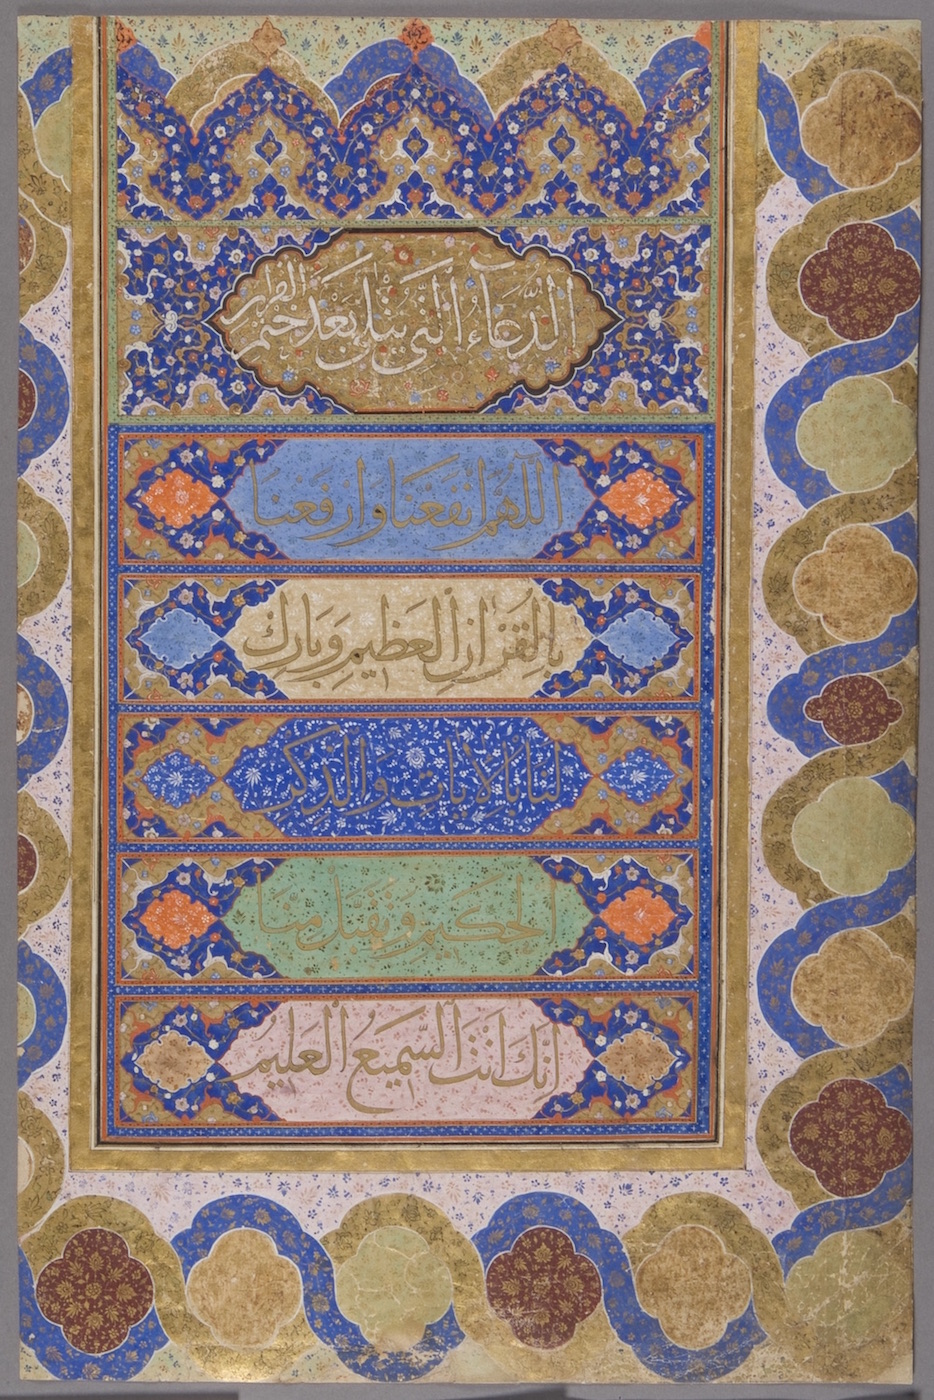 الدُّعَآءُ الَّتِي يُتْلٰى بَعْدَ خَتْمِ القرآن
اَللّٰهُمَّ انْفَعْنَا وَارْفَعْنَا
بِالْقُرْاٰنِ الْعَظِيمِ وَبَارِكْ
لَنَا بِالْاٰيَاتِ وَالذِّكْرِ
الْحَكِيمِ وَتَقَبَّلْ مِنَّا
اِنَّكَ اَنْتَ السَّمِيعُ الْعَلِيمُ